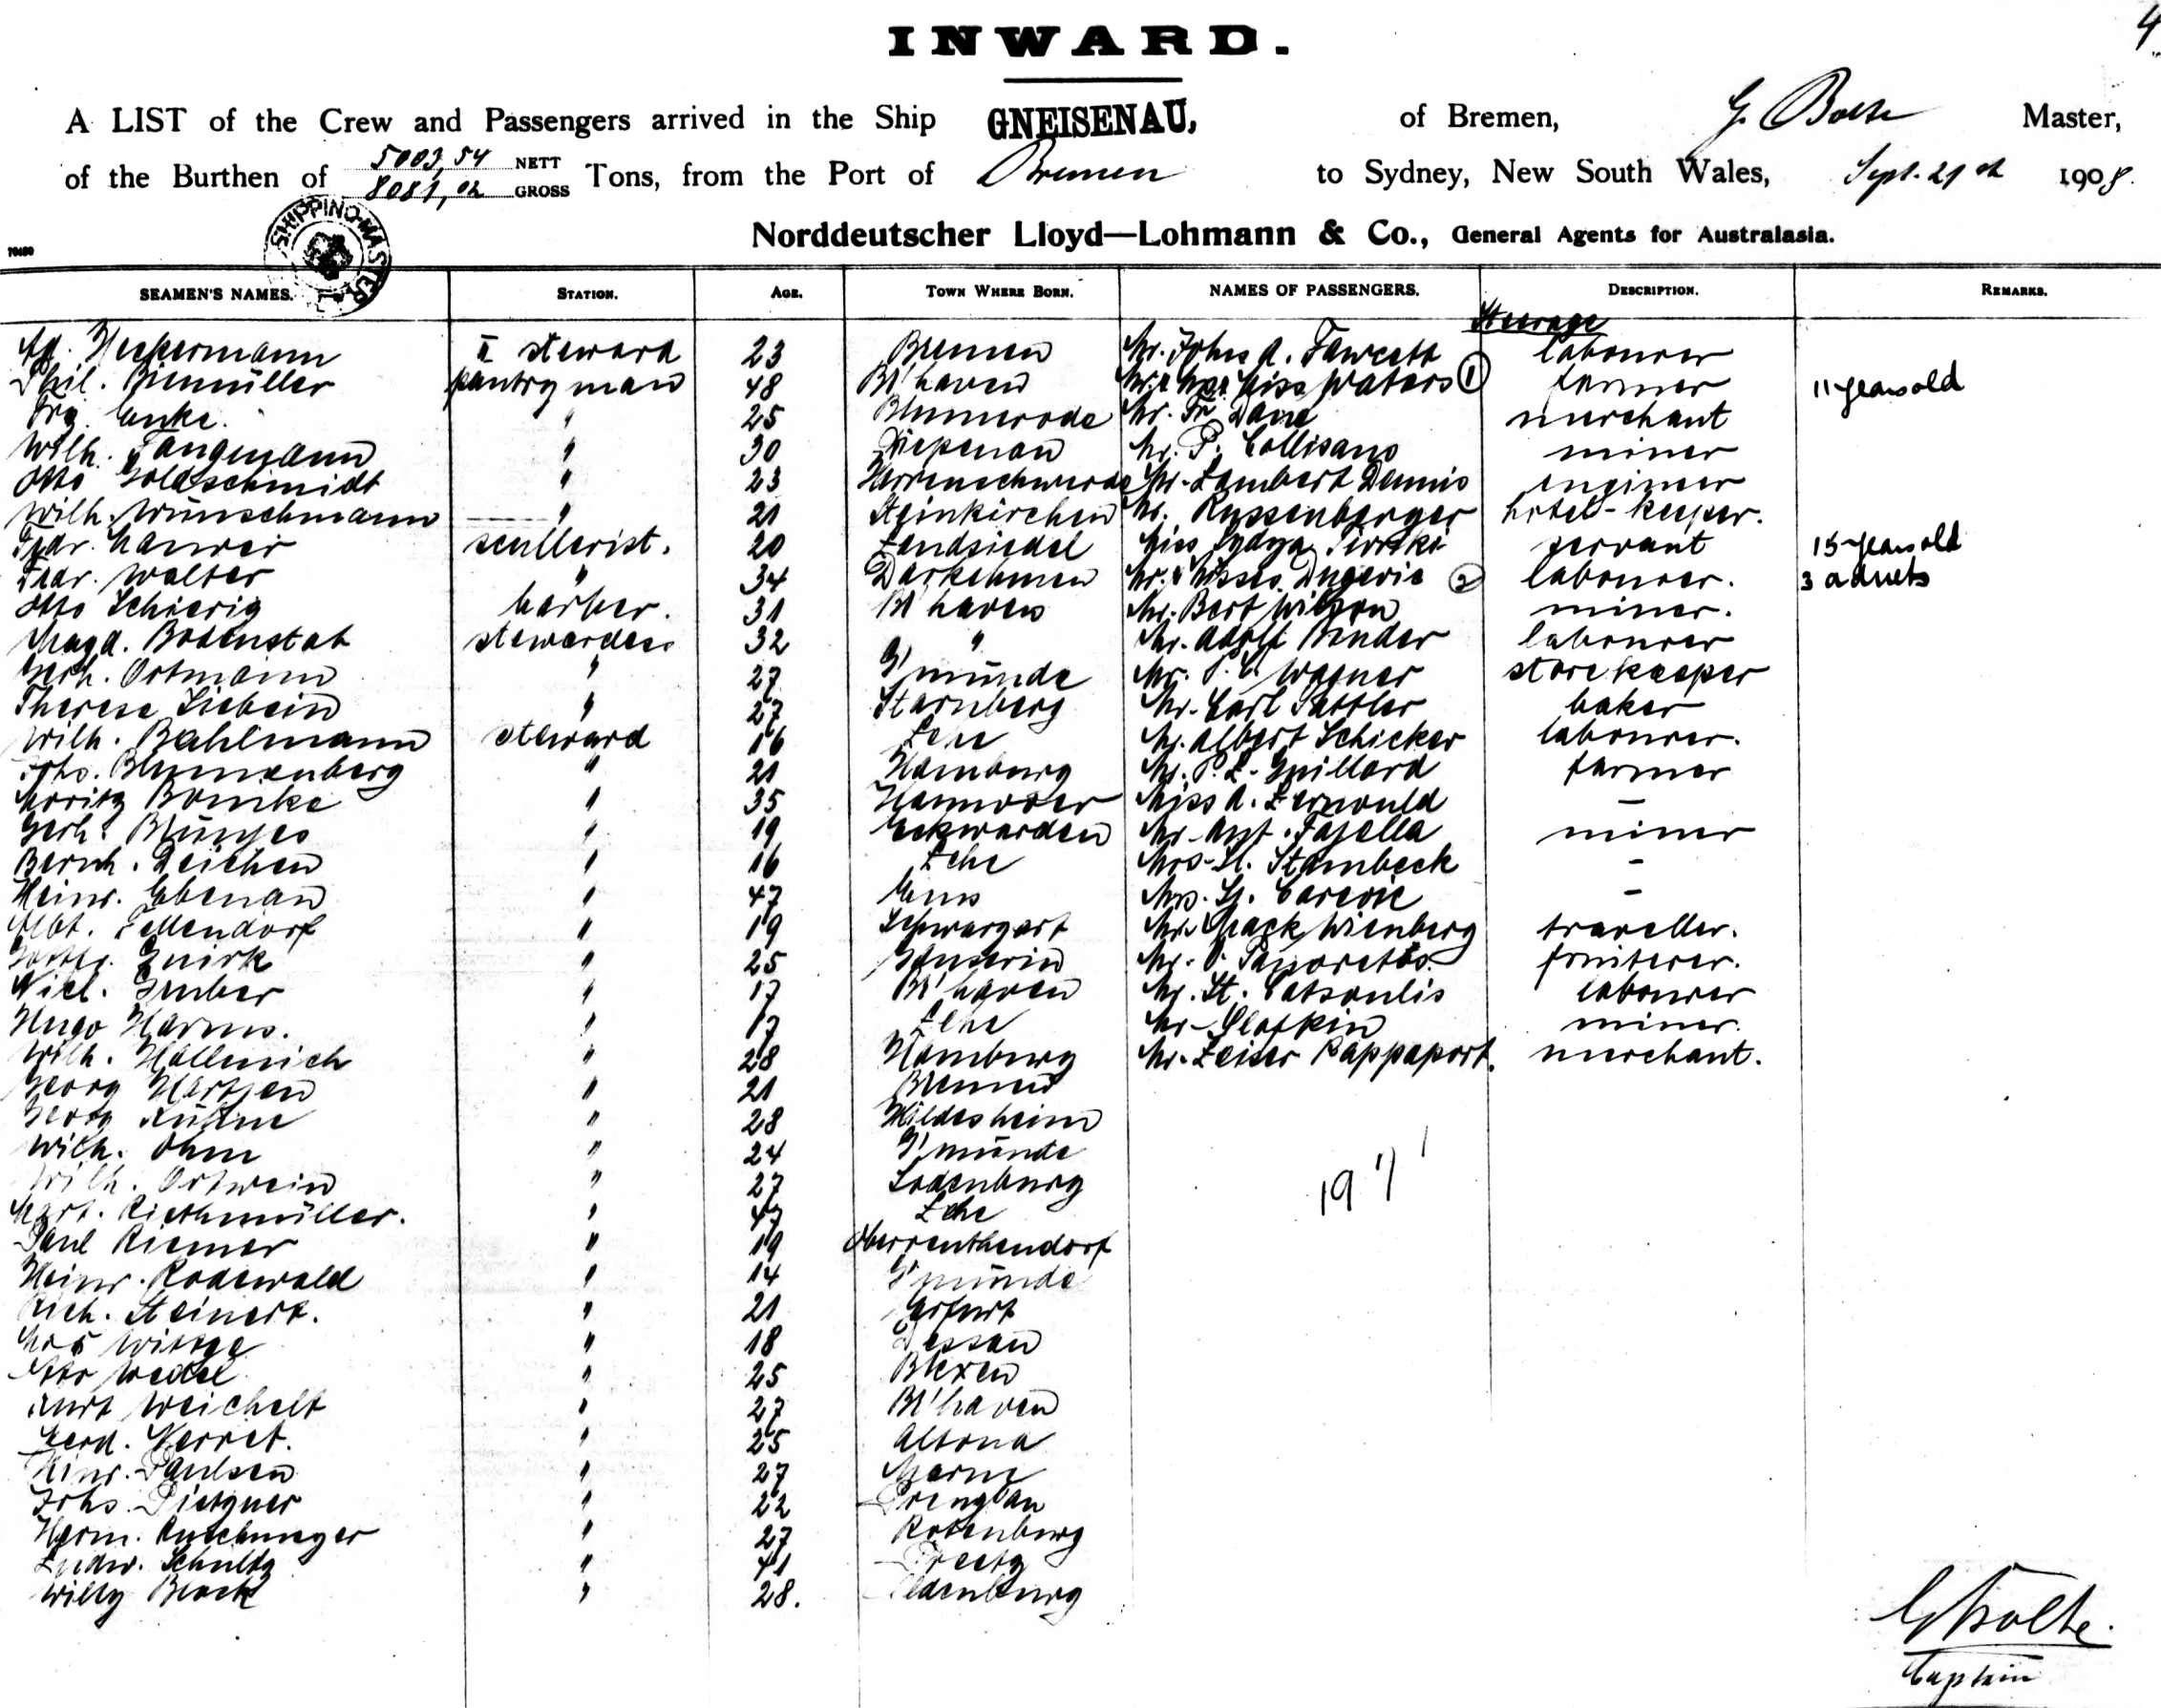 4
INWARD.
A LIST of the Crew and Passengers arrived in the Ship GNEISENAU, of Bremen, G. Bolte Master,
of the Burthen of 5003,54 NETT 8081,02 GROSS Tons, from the Port of Bremen to Sydney, New South Wales, Sept. 21st 1908.
SHIPPING MASTER
Norddeutscher Lloyd—Lohmann & Co., General Agents for Australasia.
SEAMEN'S NAMES. STATION. AGE. TOWN WHERE BORN. NAMES OF PASSENGERS. DESCRIPTION. REMARKS.
Steerage
Heckermann II steward 23 Bremen Mr. John A. Fawcett labourer
Phil. Biemüller pantryman 48 B'haven Mr. & Mrs. & Miss Waters 1 farmer 11 years old
Enke. " 25 Blumerode Mr. Fr. Dane merchant
Wilh. Tangemann " 30 Diepenau Mr. P. Collisano miner
Otto Goldschmidt " 23 Mr. Lambert Dennis engineer
Wilh. Wünschmann " 21 Steinkirchen Mr. Russenberger hotel-keeper.
scullerist. 20 Landsiedel Miss servant 15 years old
Frdr. Walter " 34 Darkehmen Mr. & Misses 2 labourer. 3 adults
Otto Schierig barber. 31 B'haven Mr. Bert Wilson miner.
Magd. Bodenstab stewardess 32 " Mr. Adolf Binder labourer
Gerh. Ortmann " 27 G'münde Mr. Wagner storekeeper
Therese Liebein " 27 Starnberg Mr. Carl Sattler baker
Wilh. Bahlmann steward 16 Lehe Mr. Albert Schicker labourer.
Johs. Blumenberg " 21 Hamburg Mr. P. L. Guillard farmer
Moritz Bömcke " 35 Hannover Miss A. Lernould —
Gerh. " 19 Eckwarden Mr. Ant. Fajella miner
Bernh. Deichen " 16 Lehe Mrs. Stambeck -
Heinr. Ebenau " 47 Ems Mrs. Carevic -
Albt. Fellendorf " 19 Mr. Mack Wienberg traveller.
" 25 Mr. fruiterer.
Nicl. Gruber " 17 B'haven Mr. St. Catsoulis labourer
Hugo Harms. " 17 Lehe Mr. miner.
Wilh. Hollenich " 28 Hamburg Mr. Leiser Rappaport. merchant.
Georg Hartjen " 21 Bremen
Georg " 28 Hildesheim
Wilh. Ohm " 24 G'münde
Wilh. Ortwein " 27
197
Mart. Riethmüller. " 47 Lehe
Paul Riemer " 19 Oberrenthendorf
Heinr. Rodewald " 14 G'münde
Rich. Steinert. " 21 Erfurt
" 18 Dessau
Otto Wedel " 25 Blexen
Kurt Weichelt " 27 B'haven
Gerd. Verret. " 25 Altona
Hinr. Paulsen " 27 Marne
Johs. " 22 Prenzlau
Herm. Ruschmeyer " 27 Rotenburg
Ludw. Schultz " 41 Preetz
Willy Block " 28. Oldenburg
G Bolte.
Captain